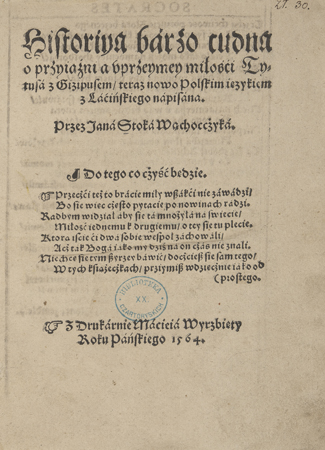 21. 30.
Historiya barzo cudna
o przyiaźni a vprzeymey miłości Ty-
tusa z Gizipusem/ teraz nowo Polskim ięzykiem
z Łácińskiego nápisána.
Przez Janá Stoká Wąchocczyká.
Do tego co czyść będzie.
Przecżći też to brácie miły wszákći nie záwádzi/
Bo sie więc często pytacie po nowinach rádzi.
Rádbym widział áby sie tá mnożyłá ná świecie/
Miłość iednemu k drugiemu/ o tey sie tu plecie.
Którą iście ći dwá sobie wespoł záchowáli/
Aći ták Bogá iáko my dziś ná on czás nie ználi.
Niechćiey sie tym szyrzey báwić/ doczćiesz sie sam tego/
W tych książeczkách/ przyimiż wdzięcznie iáko od
prostego.
BIBLIOTEKA
XX.
CZARTORYSKICH
Z Drukárnie Máćieiá Wyrzbięty
Roku Páńskiego 1564.